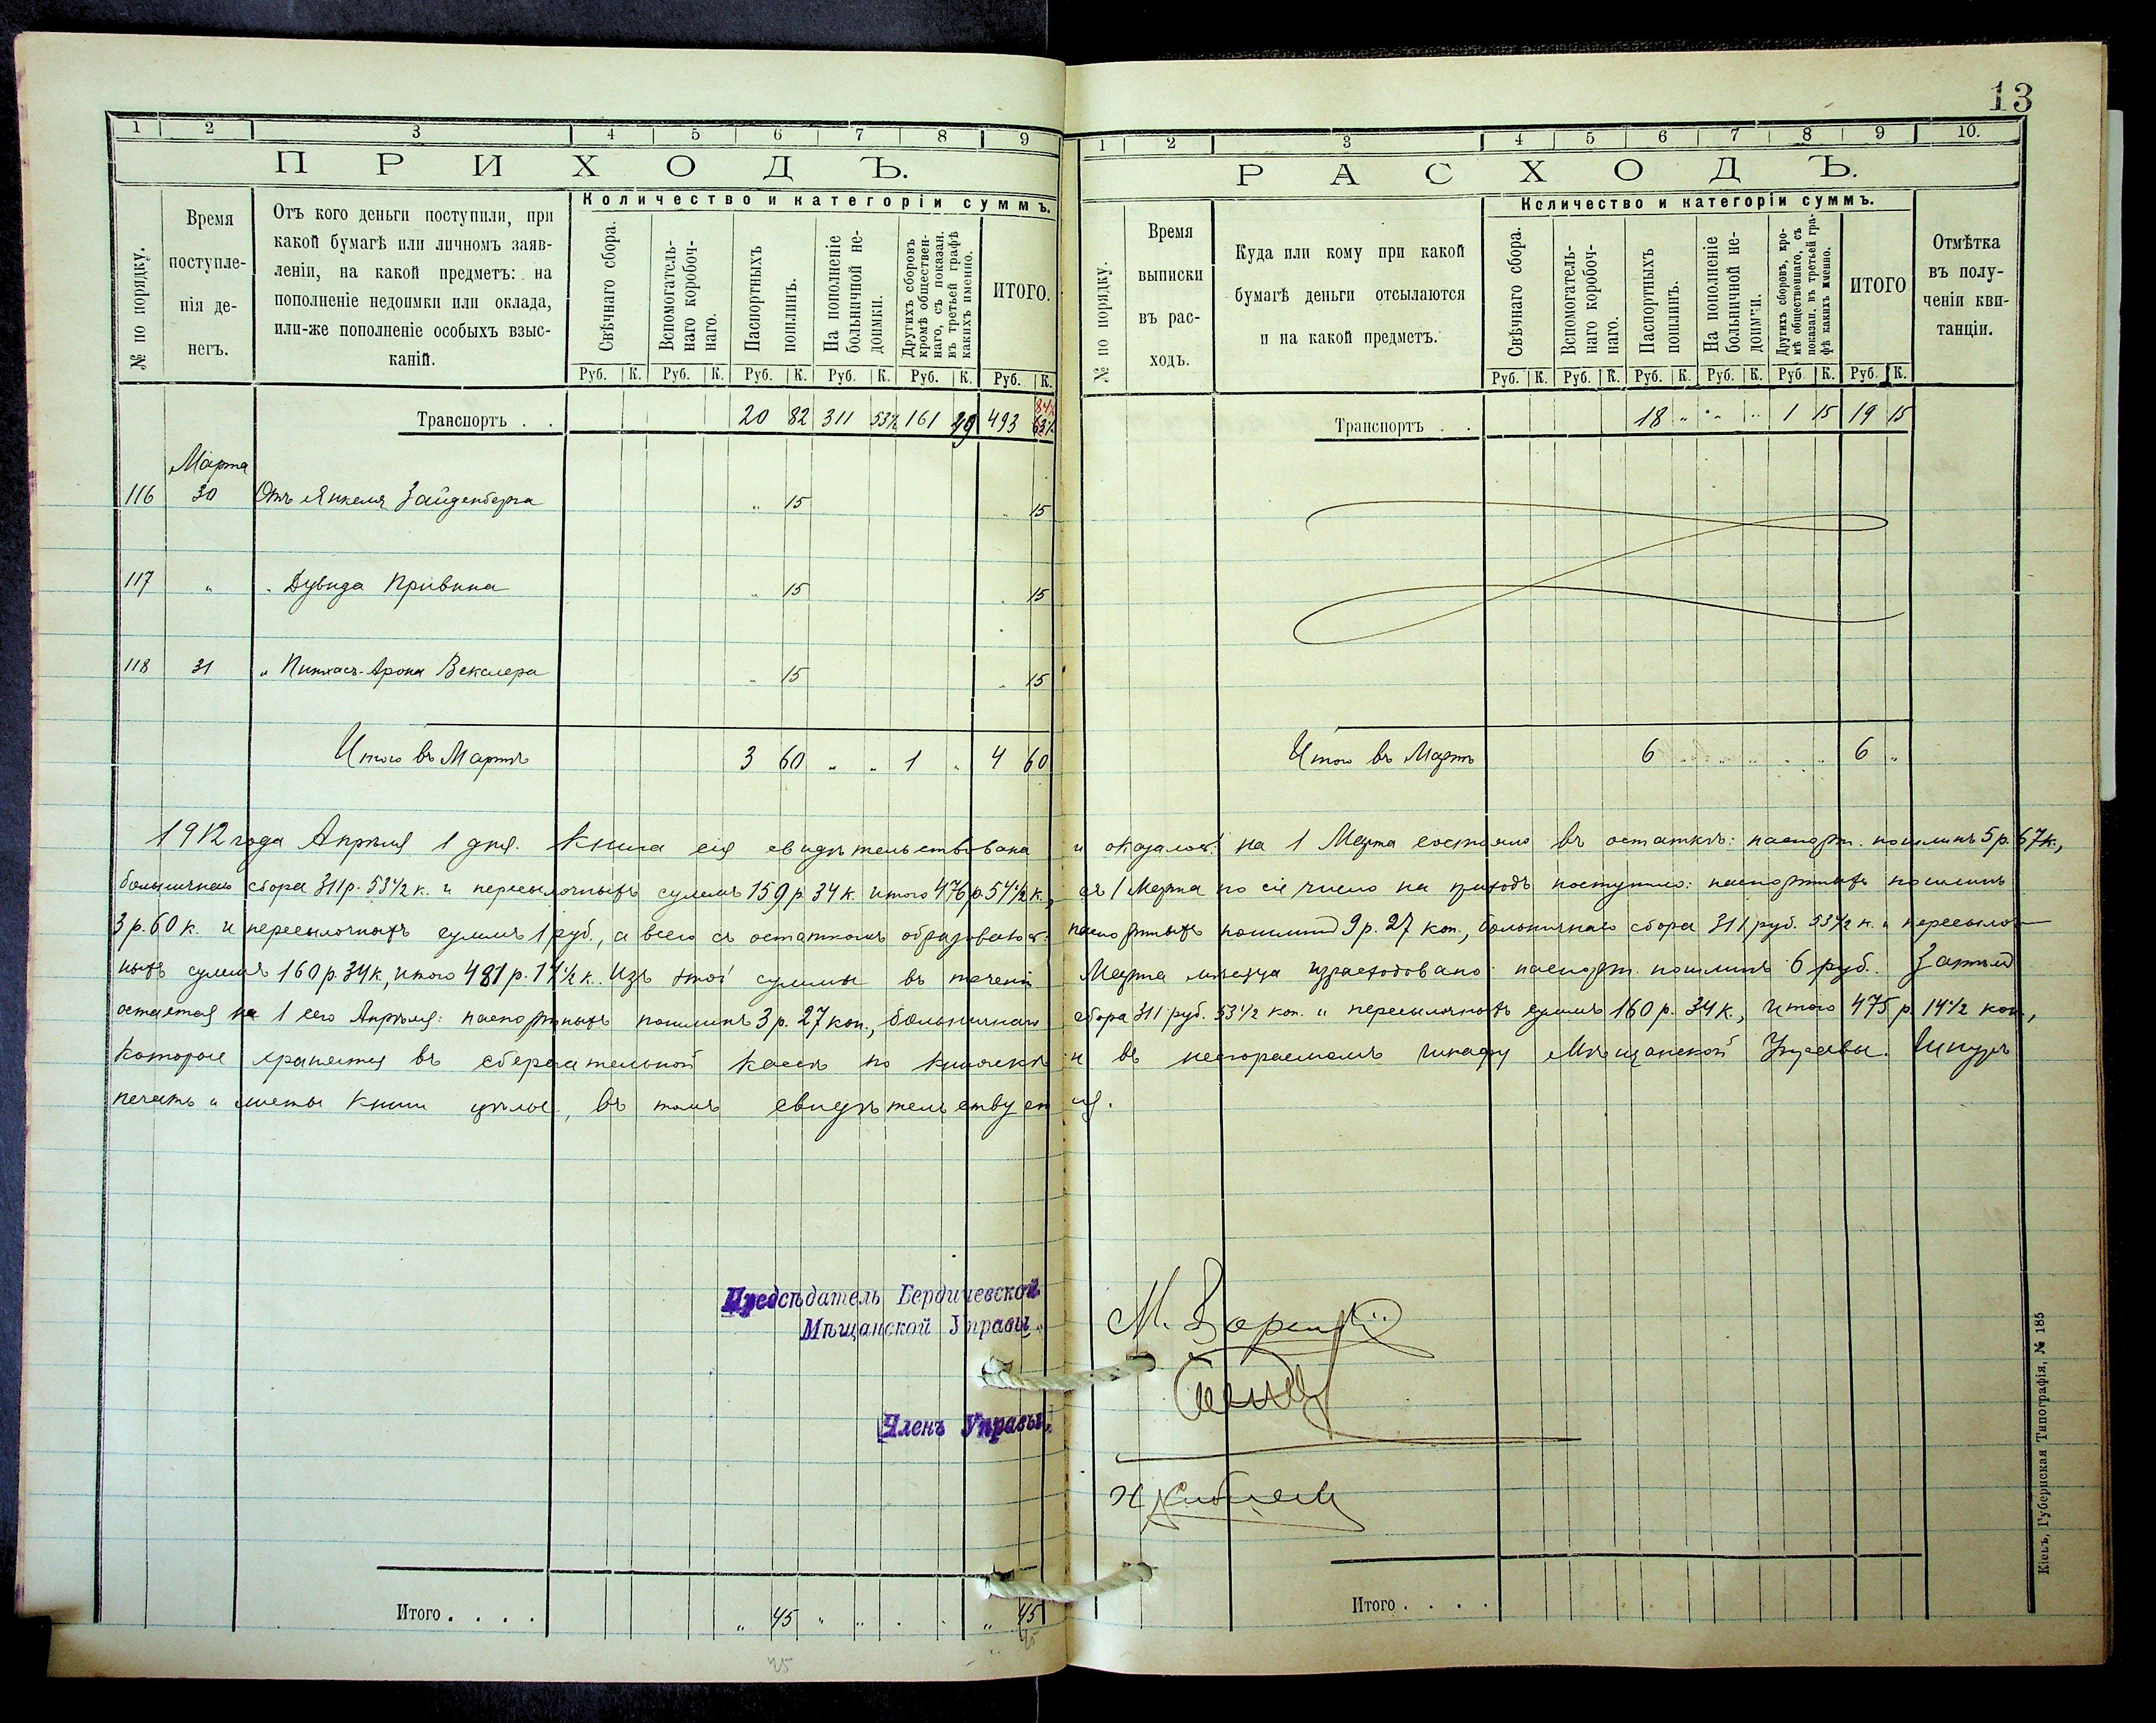 13
1 2 3 4 5 6 7 8 9
ПРИХОДЪ.
№ по порядку.
Время поступле-
нія де-
негъ.
Отъ кого деньги поступили, при
какой бумагѣ или личномъ заяв-
леніи, на какой предметъ: на
пополненіе недоимки или оклада,
или-же пополненіе особыхъ взыс-
каній.
Количество и категоріи суммъ.
Свѣчнаго сбора.
Вспомогатель-
наго коробоч-
наго.
Паспортныхъ
пошлинъ.
На пополненіе
больничной не-
доимки.
Другихъ сборовъ
кромѣ обществен-
наго, съ показан.
въ третьей графѣ
какихъ именно.
ИТОГО.
Руб. К. Руб. К. Руб. К. Руб. К. Руб. К. Руб. К.
Транспортъ . . 20 82 311 53½ 161 49 493 84½
Марта
116 30 Отъ Янкеля Зайденберга „ 15 „ 15
117 „ „ Дувида Кривина „ 15 „ 15
118 31 „ Пинхасъ-Арона Векслера „ 15 „ 15
Итого въ Мартѣ 3 60 „ „ 1 „ 4 60
1 2 3 4 5 6 7 8 9 10.
РАСХОДЪ.
№ по порядку.
Время
выписки
въ рас-
ходъ.
Куда или кому при какой
бумагѣ деньги отсылаются
и на какой предметъ.
Количество и категоріи суммъ.
Свѣчнаго сбора.
Вспомогатель-
наго коробоч-
наго.
Паспортныхъ
пошлинъ.
На пополненіе
больничной не-
доимки.
Другихъ сборовъ, кро-
мѣ общественнаго, съ
показан. въ третьей гра-
фѣ какихъ именно.
ИТОГО
Отмѣтка
въ полу-
ченіи кви-
танціи.
Руб. К. Руб. К. Руб. К. Руб. К. Руб. К. Руб. К.
Транспортъ . . 18 „ „ „ 1 15 19 15
Итого въ Мартѣ 6 „ „ „ „ „ 6 „
1912 года Апрѣля 1 дня. Книга сія свидѣтельствована и оказалось: на 1 Марта состояло въ остаткѣ: паспорт. пошлинъ 5 р. 67 к.,
больничнаго сбора 311 р. 53½ к. и пересылочныхъ суммъ 159 р. 34 к. итого 476 р. 54½ к., съ 1 Марта по сіе число на приходъ поступило: паспортныхъ пошлинъ
3 р. 60 к. и пересылочныхъ суммъ 1 руб., а всего съ остаткомъ образовалось: паспортныхъ пошлинъ 9 р. 27 коп., больничнаго сбора 311 руб. 53½ к. и пересылоч-
ныхъ суммъ 160 р. 34 к., итого 481 р. 14½ к. Изъ этой суммы въ теченіи Марта мѣсяца израсходовано: паспорт. пошлинъ 6 руб. Затѣмъ
остается на 1 сего Апрѣля: паспортныхъ пошлинъ 3 р. 27 коп., больничнаго сбора 311 руб. 53½ коп. и пересылочныхъ суммъ 160 р. 34 к., итого 475 р. 14½ коп.,
которые хранятся въ сберегательной кассѣ по книжкѣ и въ несгораемомъ шкафу Мѣщанской Управы. Шнуръ
печать и листы книги цѣлые, въ томъ свидѣтельствуется.
Предсѣдатель Бердичевской
Мѣщанской Управы
Членъ Управы,
Итого . . . . „ 45 „ „ „ „ „ 45
45 „ 45
Итого . . . .
Кіевъ, Губернская Типографія, № 185